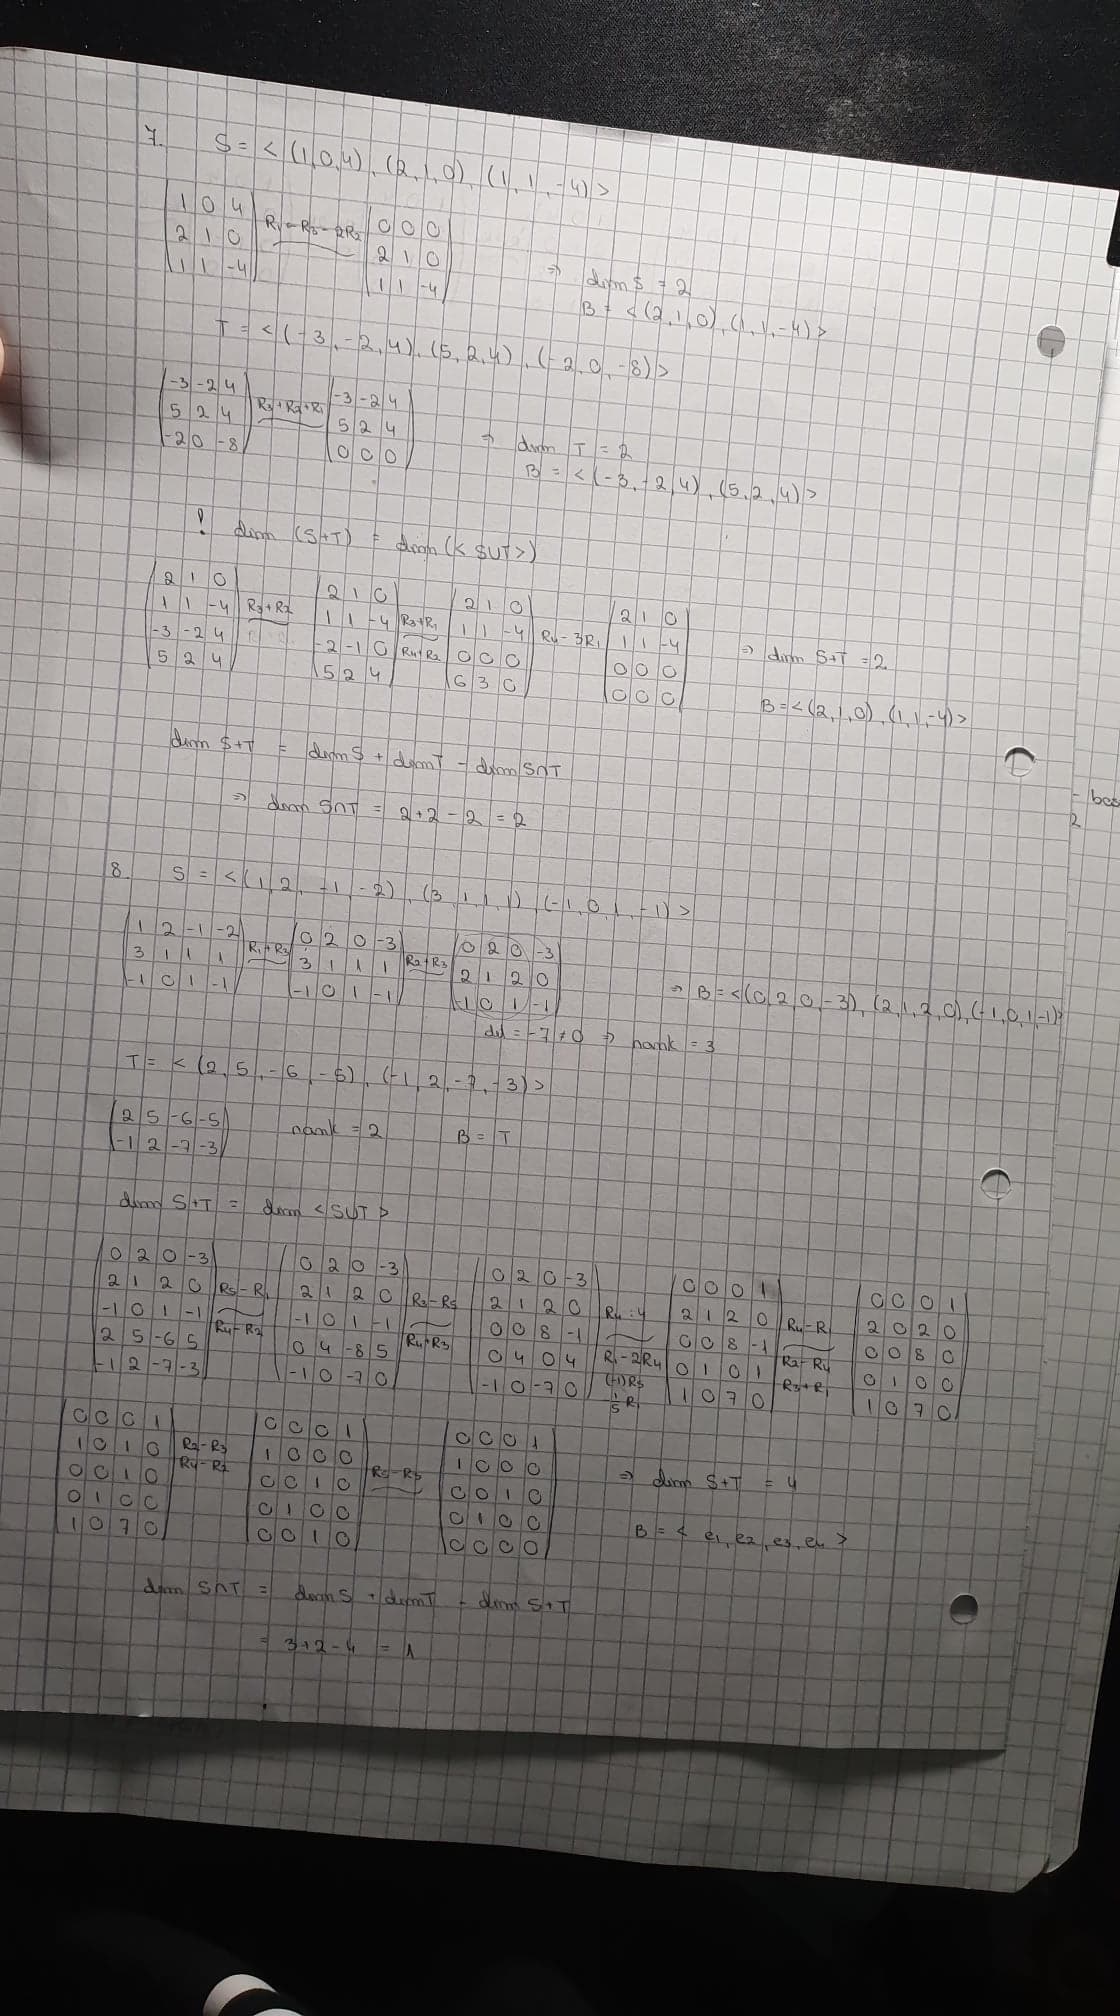 7. S = < (1,0,4), (2,1,0), (1,1,-4) >
1 0 4
2 1 0
1 1 -4
R1-R3-2R2
0 0 0
2 1 0
1 1 -4
⇒ dim S = 2
B = < (2,1,0), (1,1,-4) >
T = < (-3,-2,4), (5,2,4), (-2,0,-8) >
-3 -2 4
5 2 4
-2 0 -8
R3+R2+R1
-3 -2 4
5 2 4
0 0 0
⇒ dim T = 2
B = < (-3,-2,4), (5,2,4) >
! dim (S+T) = dim (< S∪T >)
2 1 0
1 1 -4
-3 -2 4
5 2 4
R3+R2
2 1 0
1 1 -4
-2 -1 0
5 2 4
R3+R1
R4+R2
2 1 0
1 1 -4
0 0 0
6 3 0
R4-3R1
2 1 0
1 1 -4
0 0 0
0 0 0
⇒ dim S+T = 2
B = < (2,1,0), (1,1,-4) >
dim S+T = dim S + dim T - dim S∩T
⇒ dim S∩T = 2+2-2 = 2
8. S = < (1,2,-1,-2), (3,1,1,1), (-1,0,1,-1) >
1 2 -1 -2
3 1 1 1
-1 0 1 -1
R1+R3
0 2 0 -3
3 1 1 1
-1 0 1 -1
R2+R3
0 2 0 -3
2 1 2 0
-1 0 1 -1
⇒ B = < (0,2,0,-3), (2,1,2,0), (-1,0,1,-1) >
det = -7 ≠ 0 ⇒ rank = 3
T = < (2,5,-6,-5), (-1,2,-7,-3) >
2 5 -6 -5
-1 2 -7 -3
rank = 2
B = T
dim S+T = dim < S∪T >
0 2 0 -3
2 1 2 0
-1 0 1 -1
2 5 -6 5
-1 2 -7 -3
R5-R1
R4-R2
0 2 0 -3
2 1 2 0
-1 0 1 -1
0 4 -8 5
-1 0 -7 0
R3-R5
R4+R3
0 2 0 -3
2 1 2 0
0 0 8 -1
0 4 0 4
-1 0 -7 0
R4:4
R1-2R4
(-1)R5
1/5 R1
0 0 0 1
2 1 2 0
0 0 8 -1
0 1 0 1
1 0 7 0
R4-R1
R2-R4
R3+R1
0 0 0 1
2 0 2 0
0 0 8 0
0 1 0 0
1 0 7 0
0 0 0 1
1 0 1 0
0 0 1 0
0 1 0 0
1 0 7 0
R2-R3
0 0 0 1
1 0 0 0
0 0 1 0
0 1 0 0
0 0 1 0
0 0 0 1
1 0 0 0
0 0 1 0
0 1 0 0
0 0 0 0
⇒ dim S+T = 4
B = < e1, e2, e3, e4 >
dim S∩T = dim S + dim T - dim S+T
= 3+2-4 = 1